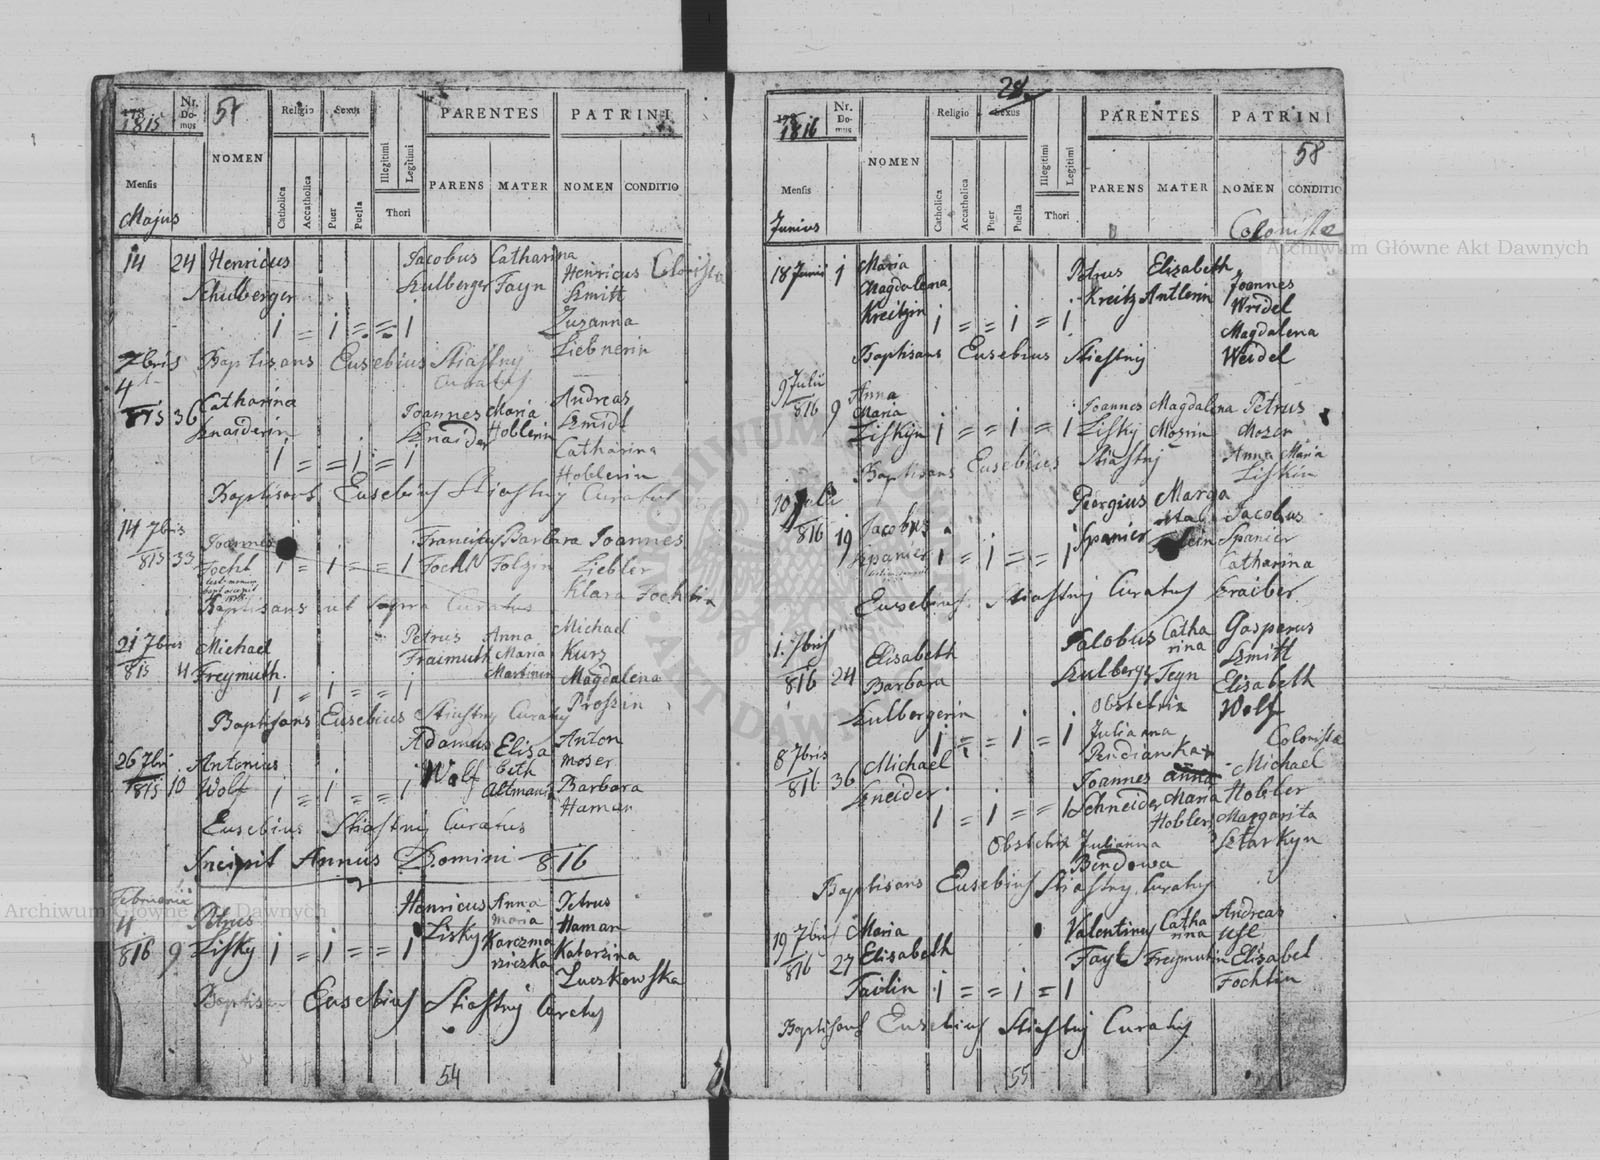 1815
Nr. Domus
57
Religio
Sexus
PARENTES
PATRINI
NOMEN
Mensis
Catholica
Accatholica
Puer
Puella
Illegitimi
Legitimi
Thori
PARENS
MATER
NOMEN
CONDITIO
Majus
14 24 Henricus Jacobus Catharina
Schulberger Szulberger Fayn Henricus Colonista
Szmitt
1 = 1 = = 1 Zuzanna
Liebnerin
7bris Baptisans Eusebius Stiastny
Curatus
4
815 36 Catharina Joannes Maria Andreas
Sznaiderin Sznaider Hoblerin Szmidt
1 = = 1 = 1 Catharina
Hoblerin
Baptisans Eusebius Stiastny Curatus
14 7bris
815 33 Joannes Franciscus Barbara Joannes
Focht 1 = 1 = = 1 Focht Folzin Liebler
Klara Fochtin
Baptisans ut supra Curatus
21 7bris Michael Petrus Anna Michael
815 4 Freymuth Fraimuth Maria Kurz
Martinin Magdalena
1 = 1 = = 1 Prossin
Baptisans Eusebius Stiastny Curatus
26 7bris Antonius Adamus Elisabeth Anton
815 10 Wolf 1 = 1 = = 1 Wolf Altmanin Moser
Barbara
Haman
Eusebius Stiastny Curatus
Incipit Annus Domini 816
Februarii
4 Petrus Henricus Anna Petrus
816 9 Lisky 1 = 1 = = 1 Lisky Maria Haman
Karczmarziczka Katarzina
Luczkowska
Eusebius Stiastny Curatus
54
1816
Nr. Domus
28
Religio
Sexus
PARENTES
PATRINI
58
NOMEN
Mensis
Catholica
Accatholica
Puer
Puella
Illegitimi
Legitimi
Thori
PARENS
MATER
NOMEN
CONDITIO
Junius
Colonistae
18 Junii 1 Maria Petrus Elizabeth Joannes
Magdalena Kreitz Antlerin Wridel
Kreitzin 1 = = 1 = 1 Magdalena
Baptisans Eusebius Stiastny Weidel
9 Julii Anna
816 9 Maria Joannes Magdalena Petrus
Liskyn 1 = = 1 = 1 Lisky Mozrin Mozer
Baptisans Eusebius Stiastny Anna Maria
Liskin
10 Juli Georgius Margareta Jacobus
816 19 Jacobus Spanier Spanier
Szpanier 1 = 1 = = 1 Catharina
Eusebius Stiastny Curatus Szraiber
1. 7bris Jalobus Catharina Gasperus
816 24 Elisabeth Szulberger Feyn Szmitt
Barbara Elisabeth
Szulbergerin Obstetrix Wolf
1 = = 1 = 1 Julianna Colonista
8 7bris
816 36 Michael Joannes Maria Michael
Szneider Schneider Hobler Hobler
1 = 1 = = 1 Margarita
Obstetrix Julianna Sztarkyn
Bendowa
Baptisans Eusebius Stiastny Curatus
19 7bris Maria Valentinus Catharina Andreas
816 27 Elisabeth Fayt Freymutin Use
Failin 1 = = 1 = 1 Elizabet
Fochtin
Baptisans Eusebius Stiastny Curatus
55
Archiwum Główne Akt Dawnych
Archiwum Główne Akt Dawnych
ARCHIWUM
AKT DAWNYCH